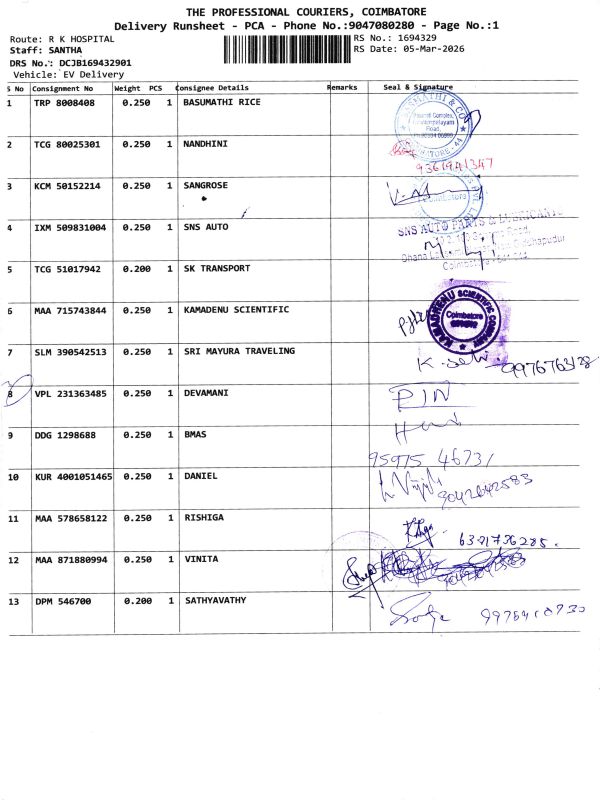 THE PROFESSIONAL COURIERS, COIMBATORE
Delivery Runsheet - PCA - Phone No.:9047080280 - Page No.:1
Route: R K HOSPITAL
RS No.: 1694329
Staff: SANTHA
RS Date: 05-Mar-2026
DRS No.: DCJB169432901
Vehicle: EV Delivery
S No Consignment No Weight PCS Consignee Details Remarks Seal & Signature
1 TRP 8008408 0.250 1 BASUMATHI RICE
2 TCG 80025301 0.250 1 NANDHINI
9361941347
3 KCM 50152214 0.250 1 SANGROSE
Coimbatore
4 IXM 509831004 0.250 1 SNS AUTO
SNS AUTO PARTS & LUBRICANTS
5 TCG 51017942 0.200 1 SK TRANSPORT
6 MAA 715743844 0.250 1 KAMADENU SCIENTIFIC
KAMADHENU SCIENTIFIC COMPANY
Coimbatore
7 SLM 390542513 0.250 1 SRI MAYURA TRAVELING
K. Selvi 9976763128
8 VPL 231363485 0.250 1 DEVAMANI
PIN
9 DDG 1298688 0.250 1 BMAS
95975 46731
10 KUR 4001051465 0.250 1 DANIEL
9042642583
11 MAA 578658122 0.250 1 RISHIGA
6381736285.
12 MAA 871880994 0.250 1 VINITA
13 DPM 546700 0.200 1 SATHYAVATHY
9976410730